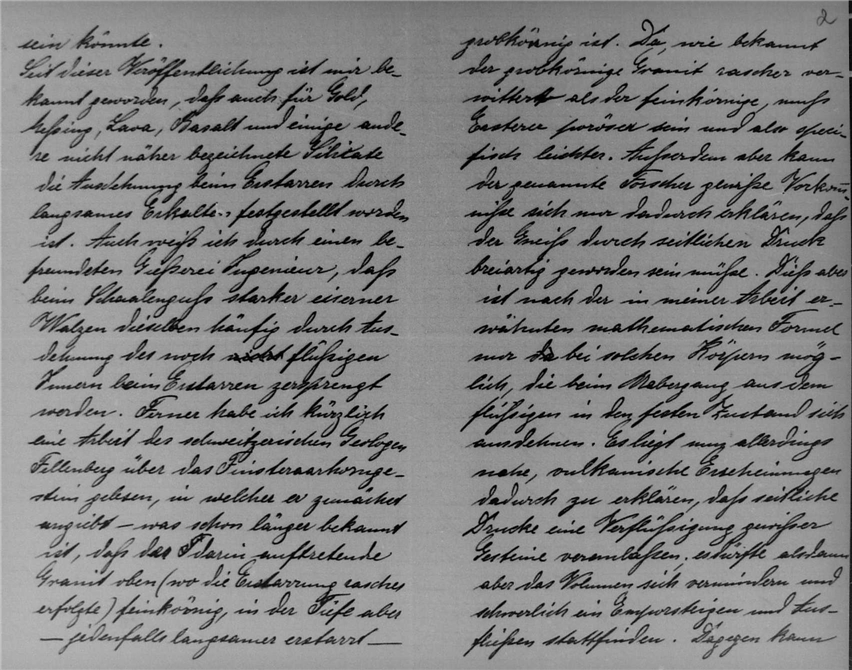 sein könnte.
Seit dieser Veröffentlichung ist mir be-
kannt geworden, daß auch für Gold,
Messing, Lava, Basalt und einige ande-
re nicht näher bezeichnete Silikate
die Ausdehnung beim Erstarren durch
langsames Erkalten festgestellt worden
ist. Auch weiß ich durch einen be-
freundeten Gießerei Ingenieur, daß
beim Schalenguß starker eiserner
Walzen dieselben häufig durch Aus-
dehnung des noch flüßigen
Innern beim Erstarren zersprengt
werden. Ferner habe ich kürzlich
eine Arbeit des schweitzerischen Geologen
Fellenberg über das Finsteraarhornge-
stein gelesen, in welcher er zunächst
angiebt – was schon länger bekannt
ist, daß der darin auftretende
Granit oben (wo die Erstarrung rascher
erfolgte) feinkörnig, in der Tiefe aber
– jedenfalls langsamer erstarrt –
2
grobkörnig ist. Da, wie bekannt
der grobkörnige Granit rascher ver-
wittert als der feinkörnige, muß
Ersterer poröser sein und also speci-
fisch leichter. Außerdem aber kann
der genannte Forscher gewiße Vorkom̅-
niße sich nur dadurch erklären, daß
der Gneiß durch seitlichen Druck
breiartig geworden sein müße. Dieß aber
ist nach der in meiner Arbeit er-
wähnten mathematischen Formel
nur bei solchen Körpern mög-
lich, die beim Uebergang aus dem
flüßigen in den festen Zustand sich
ausdehnen. Es liegt nun allerdings
nahe, vulkanische Erscheinungen
dadurch zu erklären, daß seitliche
Drucke eine Verflüßigung gewißer
Gesteine veranlaßen, es dürfte alsdann
aber das Volumen sich vermindern und
schwerlich ein Emporsteigen und Aus-
fließen stattfinden. Dagegen kann